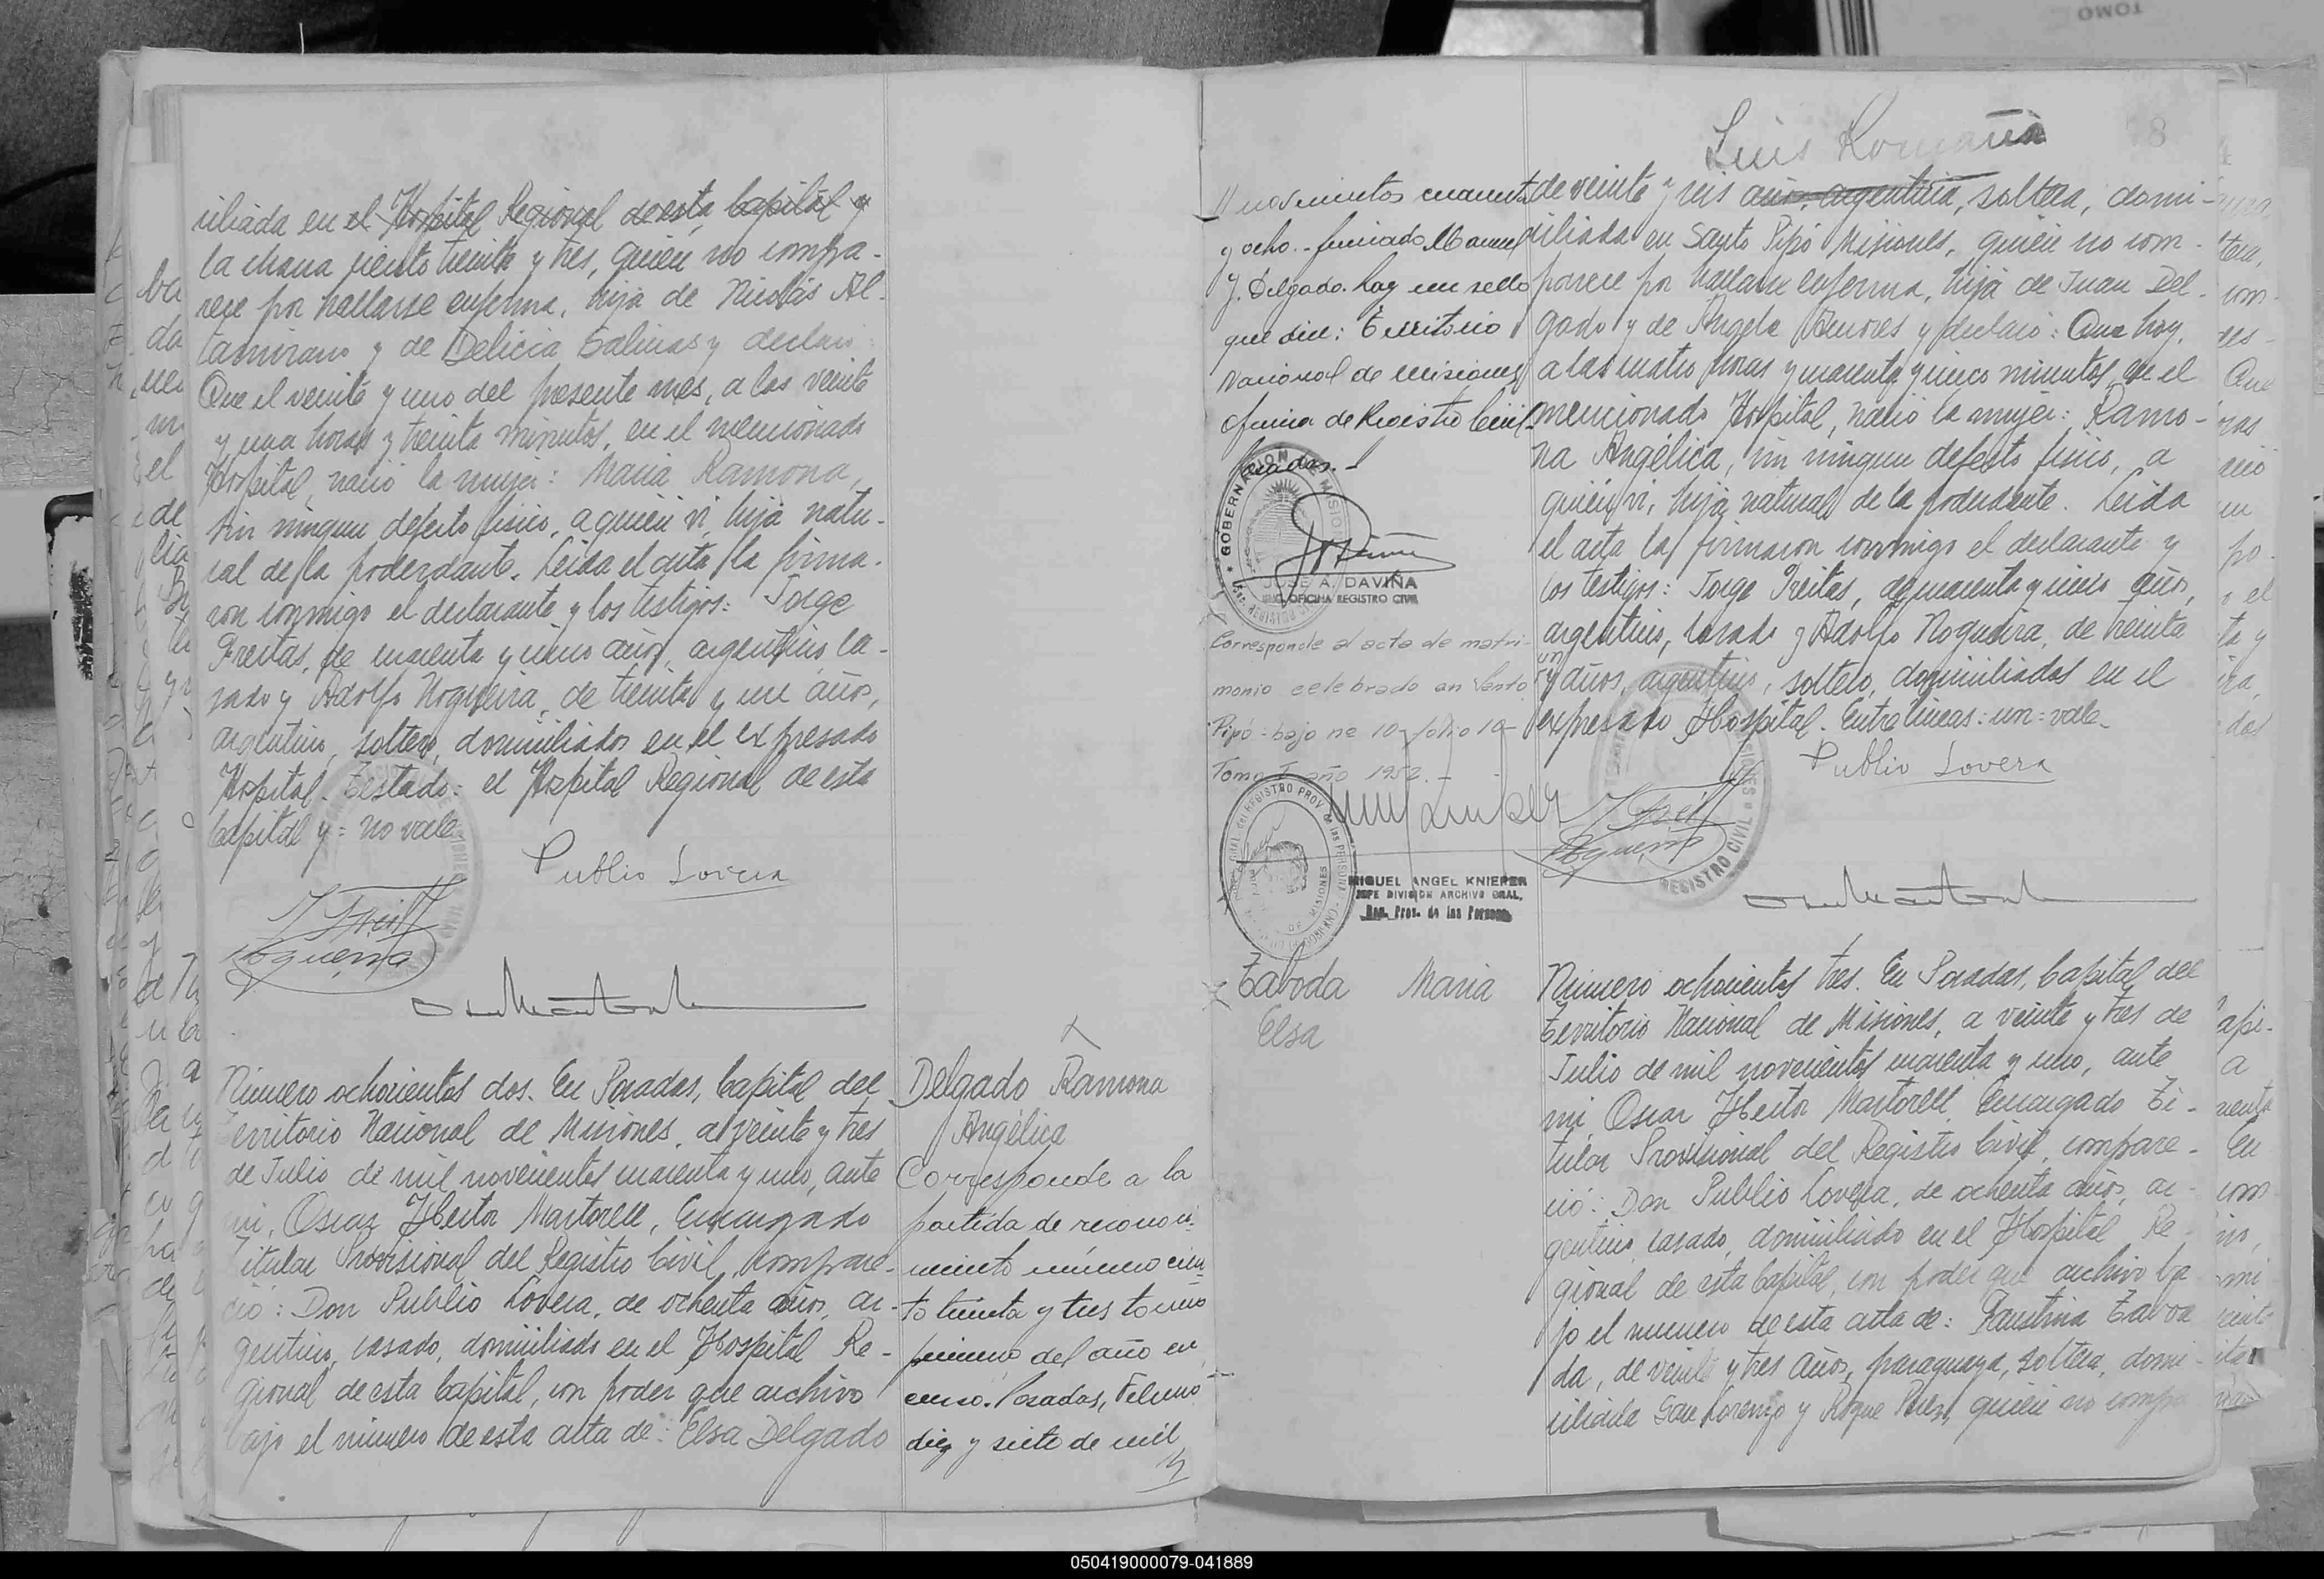 TOMO
ciliada en el Hospital Regional de esta Capital y
la chacra ciento treinta y tres, quién no compa-
rece por hallarse enferma, hija de Nicolás Al-
tamirano y de Delicia Salinas y declaró:
Que el veinte y uno del presente mes, a las veinte
y una horas y treinta minutos, en el mencionado
Hospital, nació la mujer: Maria Ramona,
sin ningun defecto físico, a quién ví, hija natu-
ral de la poderdante. Leida el acta la firma-
ron conmigo el declarante y los testigos: Jorge
Freitas, de cuarenta y cinco años, argentino ca-
sado y Adolfo Nogueira, de treinta y un años,
argentino, soltero, domiciliados en el expresado
Hospital. Testado: el Hospital Regional de esta
Capital y = no vale.
Publio Lovera
Número ochocientos dos. En Posadas, Capital del
Territorio Nacional de Misiones, a veinte y tres
de Julio de mil novecientos cuarenta y uno, ante
mi, Oscar Hector Martorell, Encargado
Titular Provisional del Registro Civil, compare-
ció: Don Publio Lovera, de ochenta años, ar-
gentino, casado, domiciliado en el Hospital Re-
gional de esta Capital, con poder que archivo
bajo el número de esta acta de: Elsa Delgado
Delgado Ramona
Angélica
Corresponde a la
partida de reconoci-
miento número cien-
to treinta y tres tomo
primero del año en
curso. Posadas, Febrero
diez y siete de mil
Luis Romaña
78
novecientos cuarenta
y ocho.- firmado Manuel
J. Delgado. hay un sello
que dice: Territorio
Nacional de Misiones
Oficina de Registro Civil-
Posadas.-
GOBERNACION DE MISIONES
JOSE A. DAVIÑA
ENC. OFICINA REGISTRO CIVIL
Corresponde al acta de matri-
monio celebrado en Santo
Pipó - bajo nº 10 - folio 10 -
Tomo I año 1952.-
MIGUEL ANGEL KNIEPER
JEFE DIVISION ARCHIVO GRAL.
Reg. Prov. de las Personas
de veinte y seis años, argentina, soltera, domi-
ciliada en Santo Pipó Misiones, quién no com-
parece por hallarse enferma, hija de Juan Del-
gado y de Angela Amores y declaró: Que hoy,
a las cuatro horas y cuarenta y cinco minutos, en el
mencionado Hospital, nació la mujer: Ramo-
na Angélica, sin ningun defecto físico, a
quién ví, hija natural de la poderdante. Leida
el acta la firmaron conmigo el declarante y
los testigos: Jorge Freitas, de cuarenta y cinco años,
argentino, casado y Adolfo Nogueira, de treinta
un
y años, argentino, soltero, domiciliados en el
expresado Hospital. Entrelineas: un = vale.
Publio Lovera
REGISTRO CIVIL
Taboda Maria
Elsa
Número ochocientos tres. En Posadas, Capital del
Territorio Nacional de Misiones, a veinte y tres de
Julio de mil novecientos cuarenta y uno, ante
mi, Oscar Hector Martorell, Encargado Ti-
tular Provisional del Registro Civil, compare-
ció: Don Publio Lovera, de ochenta años, ar-
gentino, casado, domiciliado en el Hospital Re-
gional de esta Capital, con poder que archivo ba
jo el numero de esta acta de: Faustina Taboa
da, de veinte y tres años, paraguaya, soltera, domi-
ciliada San Lorenzo y Roque Perez, quién no compa
050419000079-041889